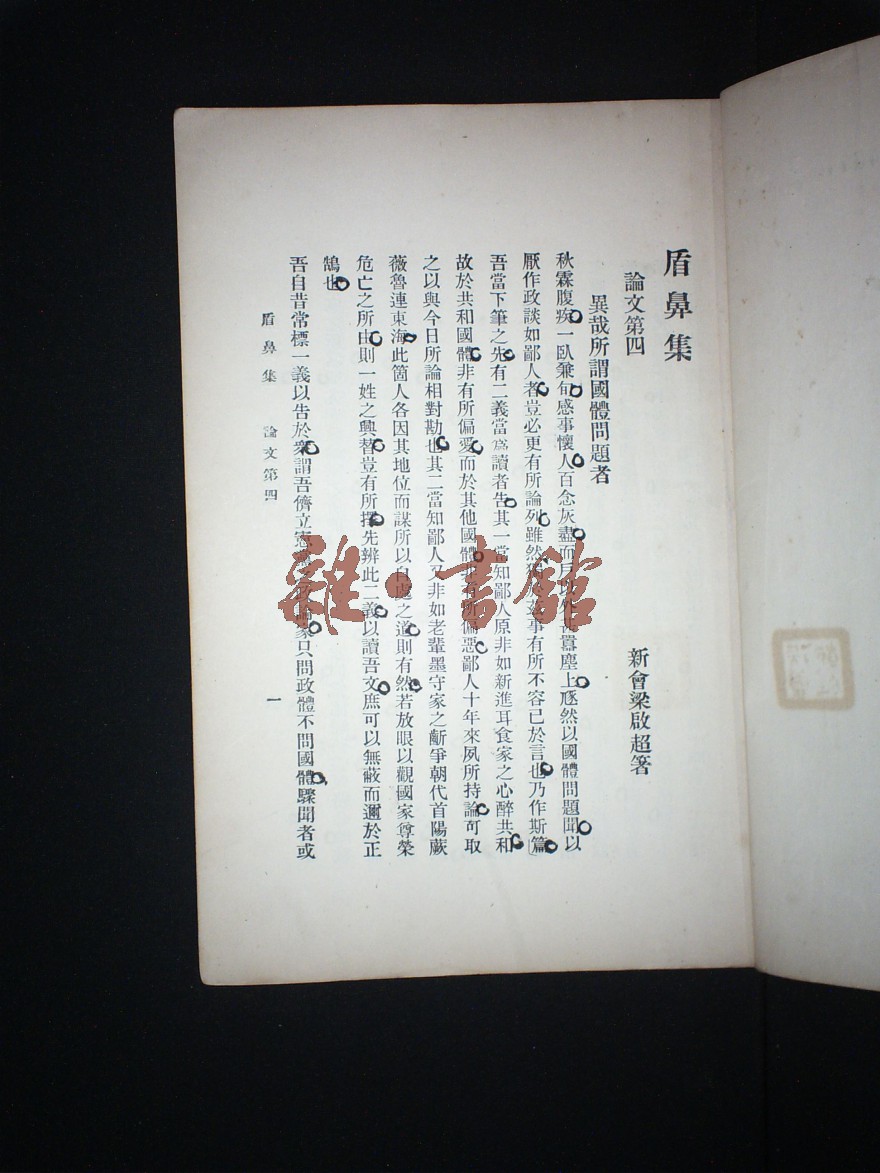 盾鼻集
論文第四 新會梁啟超箸
異哉所謂國體問題者
秋霖腹疾一臥兼旬感事懷人百念灰盡而戶以外甚囂塵上豗然以國體問題聞以
厭作政談如鄙人者豈必更有所論列雖然獨於茲事有所不容已於言也乃作斯篇
吾當下筆之先有二義當爲讀者告其一當知鄙人原非如新進耳食家之心醉共和
故於共和國體非有所偏愛而於其他國體非有所偏惡鄙人十年來夙所持論可取
之以與今日所論相對勘也其二當知鄙人又非如老輩墨守家之齗爭朝代首陽蕨
薇魯連東海此箇人各因其地位而謀所以自處之道則有然若放眼以觀國家尊榮
危亡之所由則一姓之興替豈有所擇先辨此二義以讀吾文庶可以無蔽而邇於正
鵠也
吾自昔常標一義以告於衆謂吾儕立憲黨之政論家只問政體不問國體驟聞者或
盾鼻集 論文第四 一
雜·書館